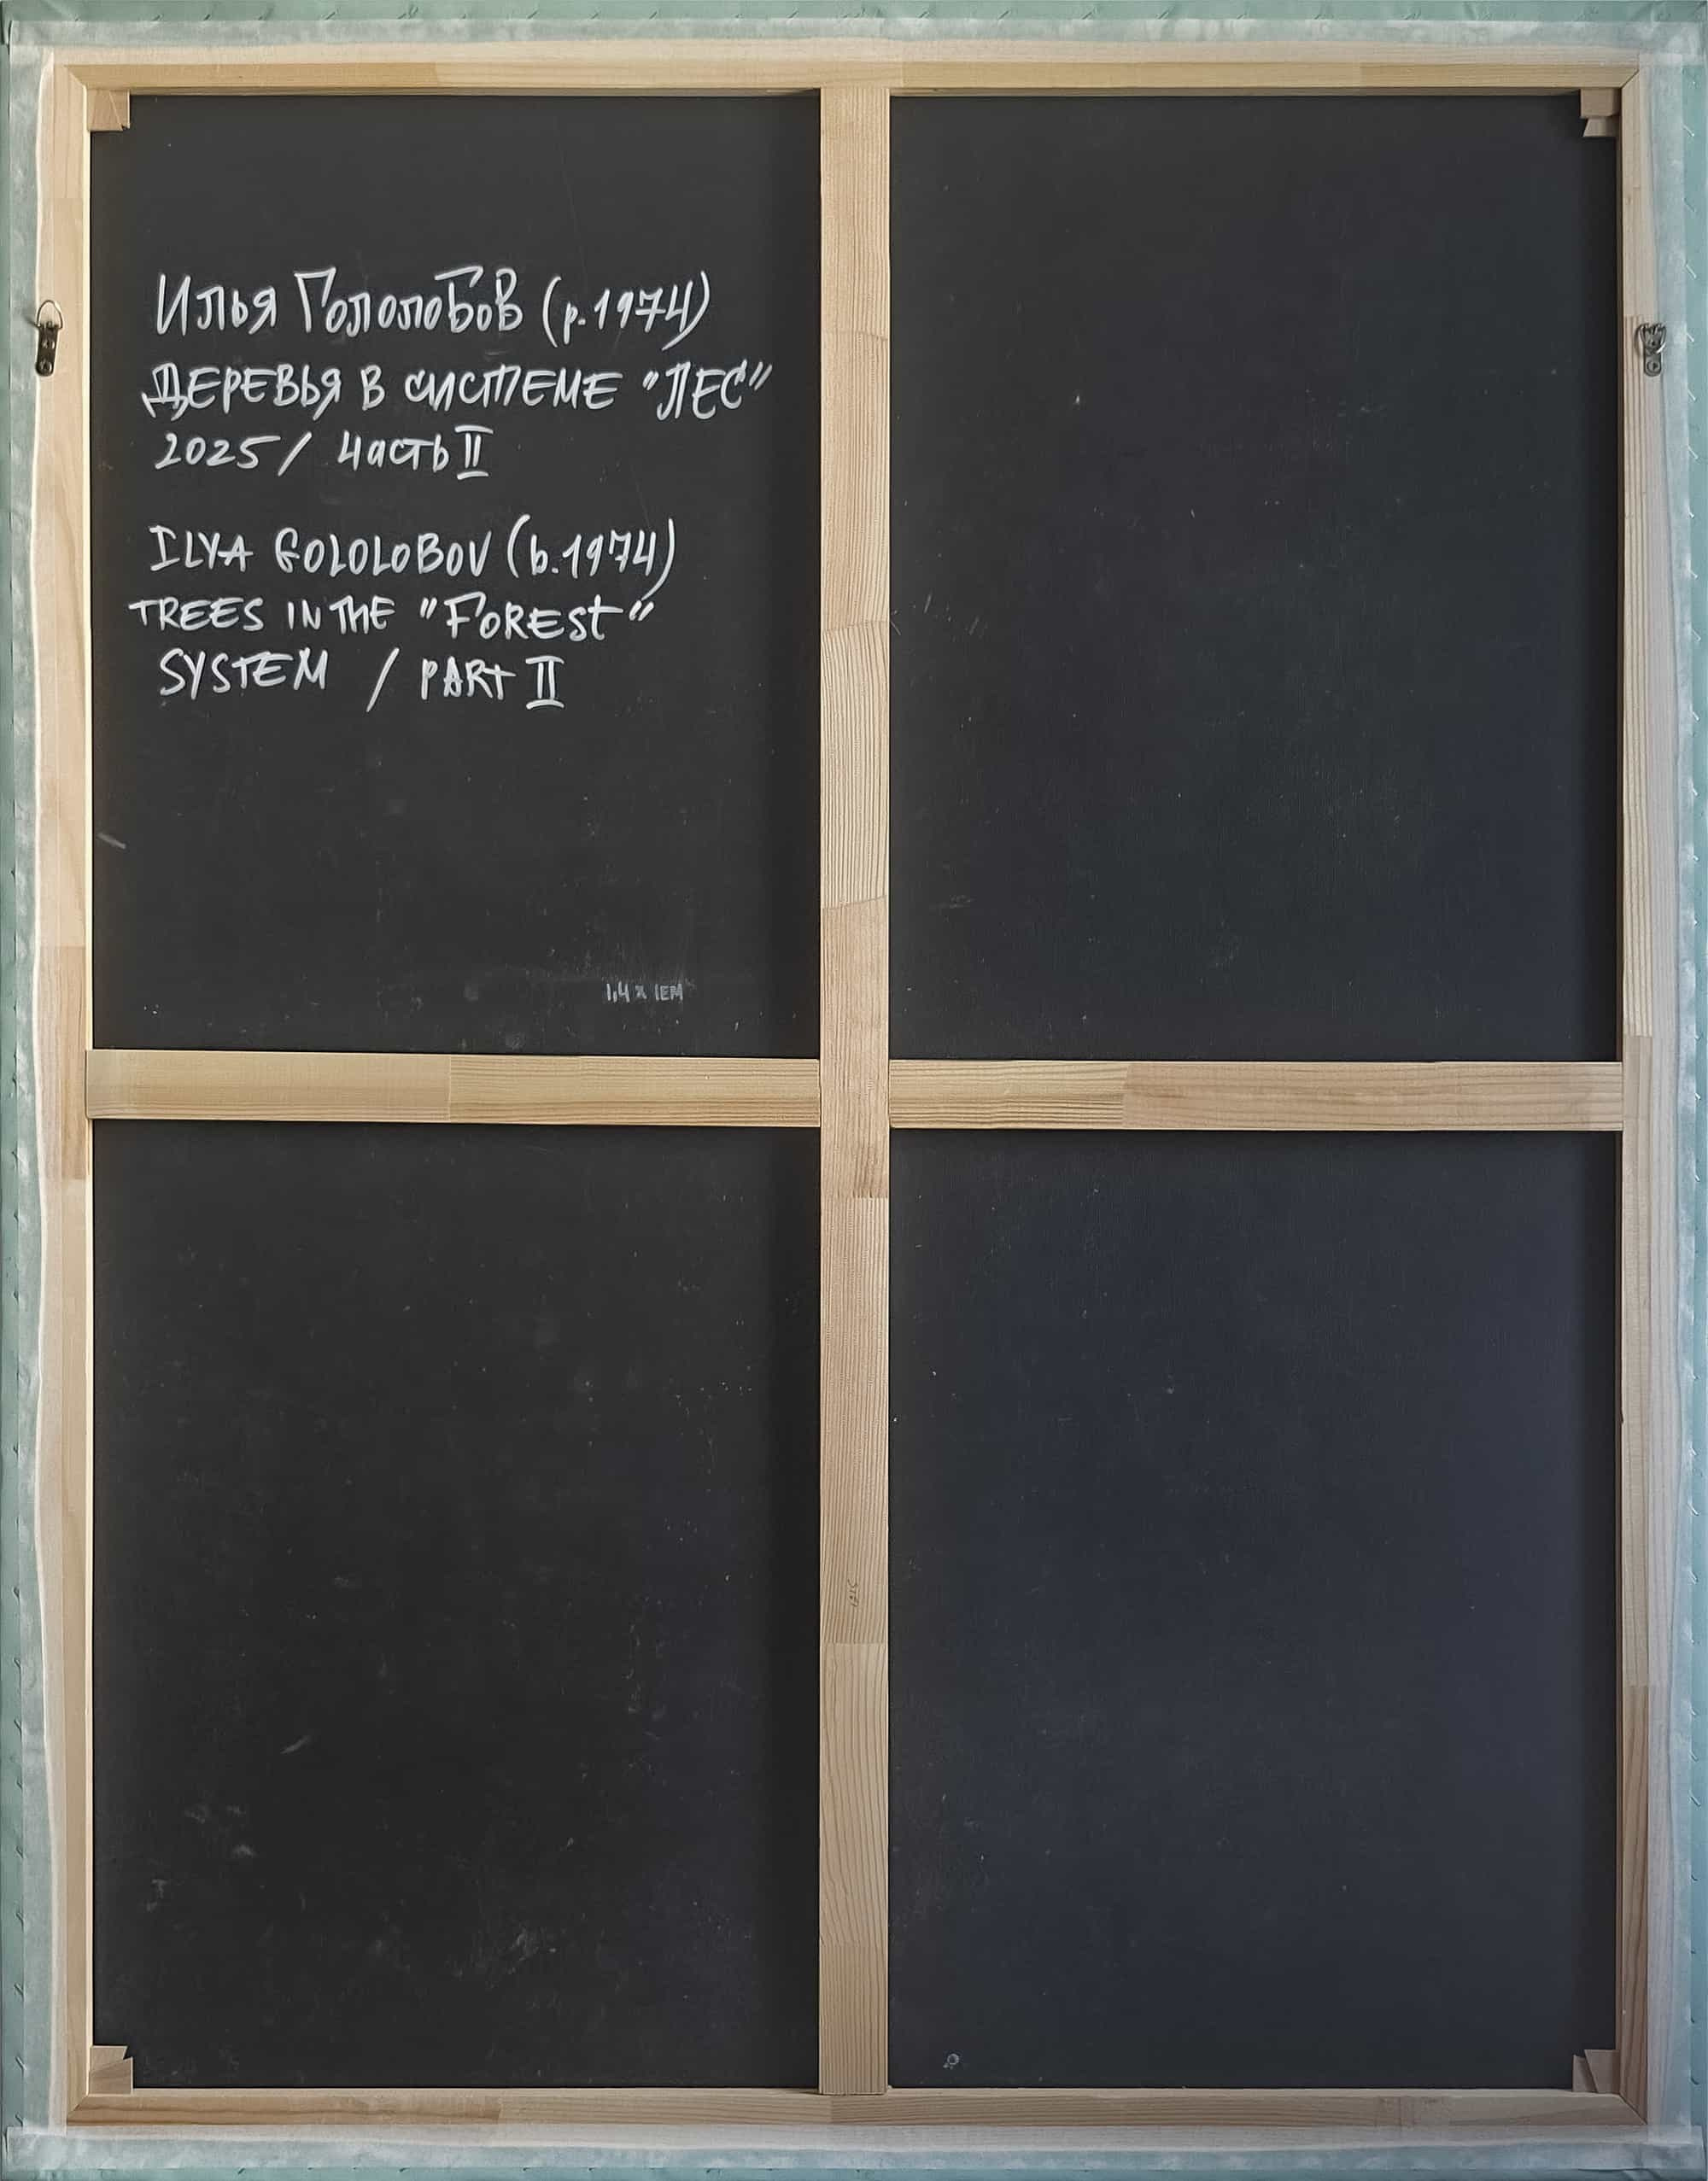 Илья Гололобов (р.1974)
ДЕРЕВЬЯ В СИСТЕМЕ "ЛЕС"
2025/ Часть II
ILYA GOLOLOBOV (b.1974)
TREES IN THE "FOREST"
SYSTEM / PART II
1,4 x